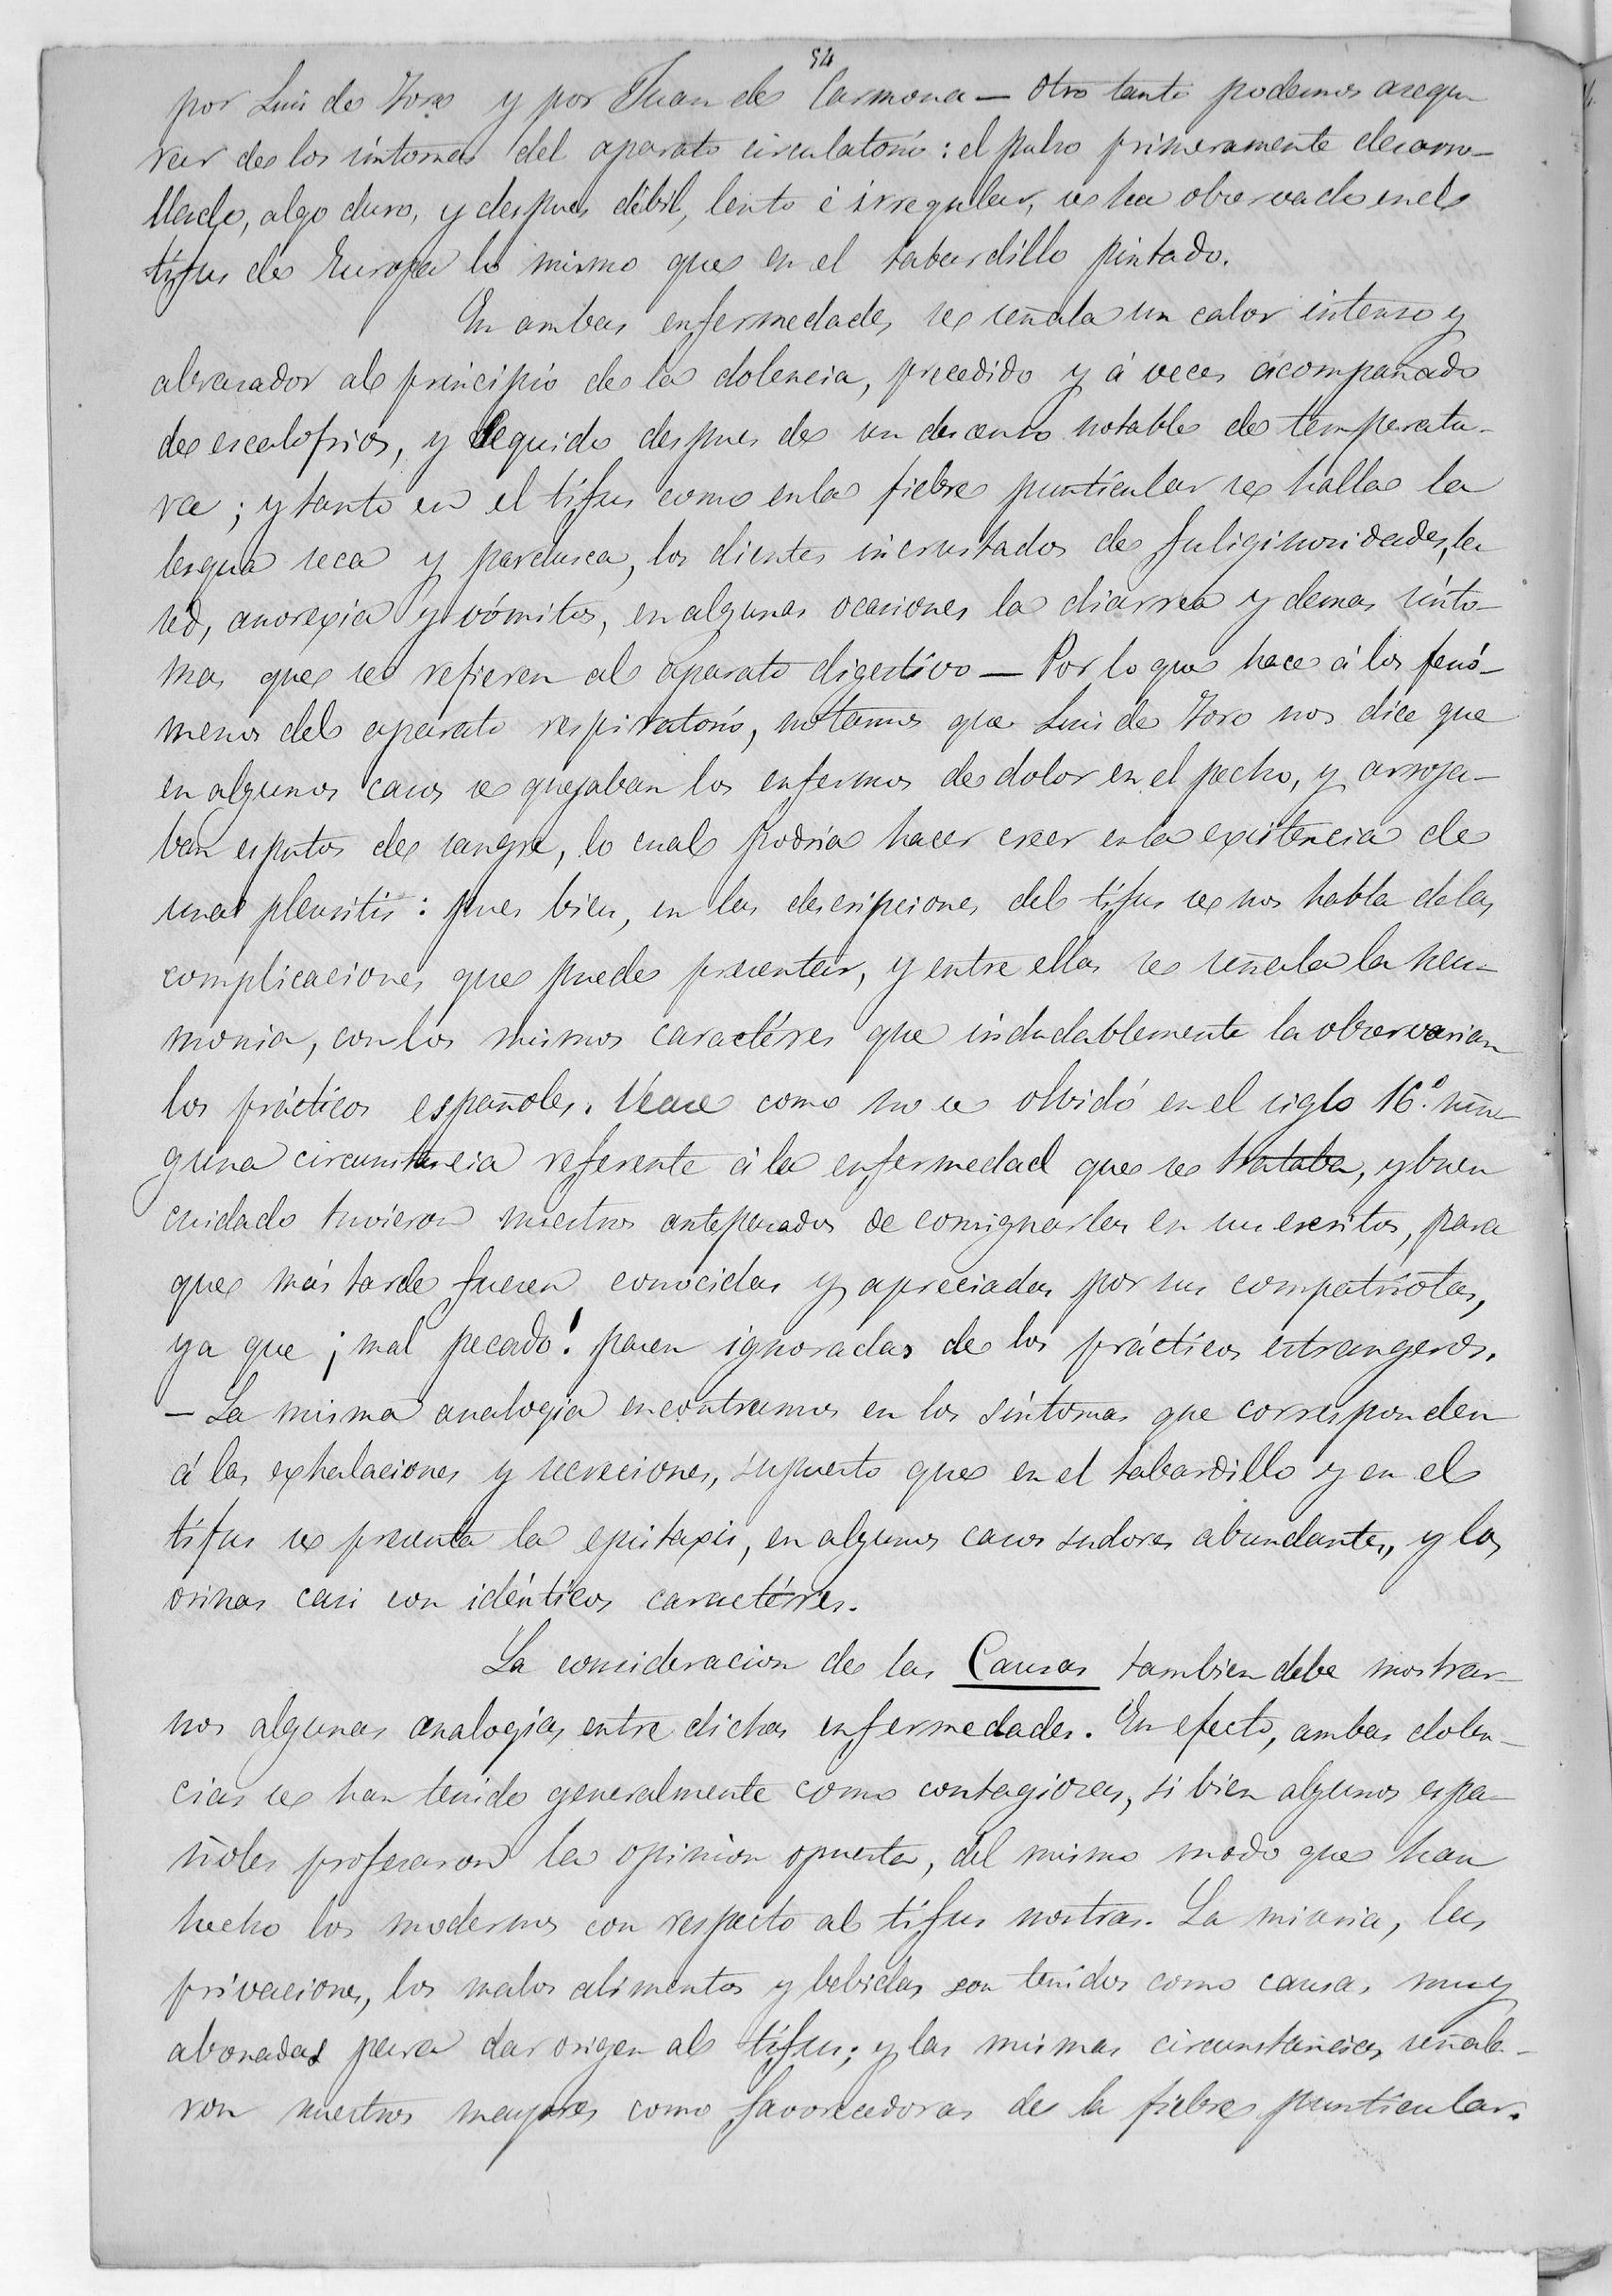 54
por Luis de Toro y por Juan de Carmona — Otro tanto podemos asegu-
rar de los síntomas del aparato circulatorio: el pulso primeramente desarro-
llado, algo duro, y despues débil, lento é irregular, se ha observado en el
tífus de Europa lo mismo que en el tabardillo pintado.
En ambas enfermedades se señala un calor intenso y
abrasador al principio de la dolencia, precedido y á veces acompañado
de escalofrios, y seguido despues de un descenso notable de temperatu-
ra; y tanto en el tífus como en la fiebre puntícular se halla la
lengua seca y pardusca, los dientes incrustados de fuliginosidades, la
sed, anorexia y vómitos, en algunas ocasiones la diarrea y demas sínto-
mas que se refieren al aparato digestivo — Por lo que hace á los fenó-
menos del aparato respiratorio, notamos que Luis de Toro nos dice que
en algunos casos se quejaban los enfermos de dolor en el pecho, y arroja-
ban esputos de sangre, lo cual podria hacer creer en la existencia de
una pleuritis: pues bien, en las descripciones del tífus se nos habla de las
complicaciones que puede presentar, y entre ellas se señala la neu-
monia, con los mismos caractéres que indudablemente la observarian
los prácticos españoles. Vease como no se olvidó en el siglo 16.º nin-
guna circunstancia referente á la enfermedad que se trataba, y buen
cuidado tuvieron nuestros antepasados de consignarlas en sus escritos, para
que más tarde fuesen conocidas y apreciadas por sus compatriotas,
ya que ¡mal pecado! pasen ignoradas de los prácticos estrangeros.
— La misma analogia encontramos en los síntomas que corresponden
á las exhalaciones y secreciones, supuesto que en el tabardillo y en el
tífus se presenta la epistaxis, en algunos casos sudores abundantes, y las
orinas casi con idénticos caractéres.
La consideracion de las Causas tambien debe mostrar-
nos algunas analogías entre dichas enfermedades. En efecto, ambas dolen-
cias se han tenido generalmente como contagiosas, si bien algunos espa-
ñoles profesaron la opinion opuesta, del mismo modo que han
hecho los modernos con respecto al tífus nostras. La miseria, las
privaciones, los malos alimentos y bebidas son tenidos como causas muy
abonadas para dar origen al tífus; y las mismas circunstancias señala-
ron nuestros mayores como favorecedoras de la fiebre puntícular.